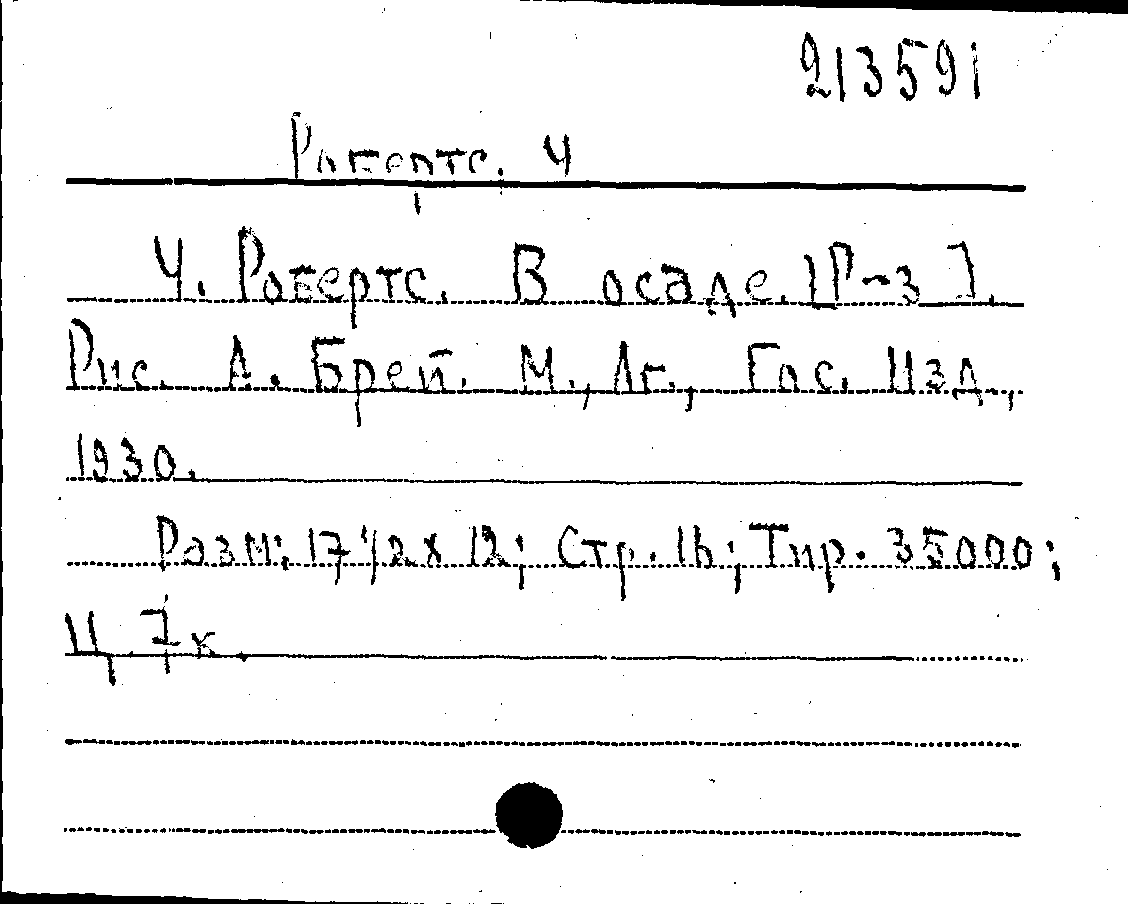 213591
Робертс. Ч
Ч. Робертс. В осаде. [Р-з].
Рис. А. Брей. М., Лг., Гос. Изд.,
1930.
Разм: 17 1/2 х 12; Стр. 16; Тир. 35000;
Ц. 7к.